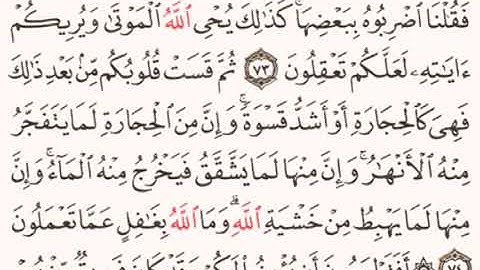 فَقُلْنَا ٱضْرِبُوهُ بِبَعْضِهَا ۚ كَذَٰلِكَ يُحْىِ ٱللَّهُ ٱلْمَوْتَىٰ وَيُرِيكُمْ
ءَايَـٰتِهِۦ لَعَلَّكُمْ تَعْقِلُونَ ٧٣ ثُمَّ قَسَتْ قُلُوبُكُم مِّنۢ بَعْدِ ذَٰلِكَ
فَهِىَ كَٱلْحِجَارَةِ أَوْ أَشَدُّ قَسْوَةً ۚ وَإِنَّ مِنَ ٱلْحِجَارَةِ لَمَا يَتَفَجَّرُ
مِنْهُ ٱلْأَنْهَـٰرُ ۚ وَإِنَّ مِنْهَا لَمَا يَشَّقَّقُ فَيَخْرُجُ مِنْهُ ٱلْمَآءُ ۚ وَإِنَّ
مِنْهَا لَمَا يَهْبِطُ مِنْ خَشْيَةِ ٱللَّهِ ۗ وَمَا ٱللَّهُ بِغَـٰفِلٍ عَمَّا تَعْمَلُونَ
٧٤